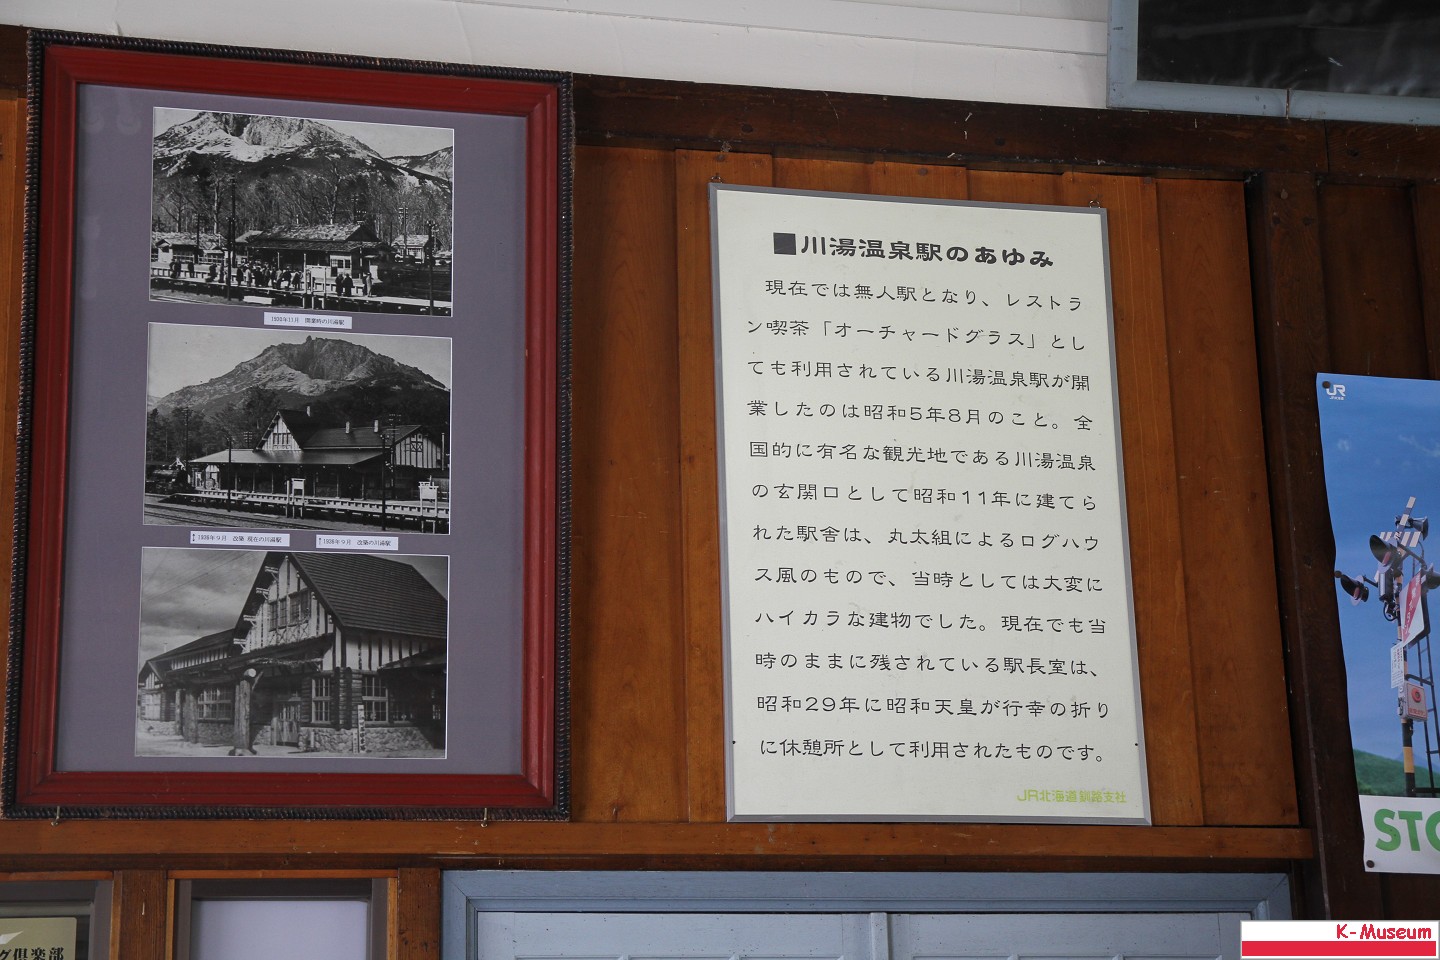 1930年11月 開業時の川湯駅
1936年9月 改築 現在の川湯駅
1936年9月 改築の川湯駅
■川湯温泉駅のあゆみ
現在では無人駅となり、レストラ
ン喫茶「オーチャードグラス」とし
ても利用されている川湯温泉駅が開
業したのは昭和5年8月のこと。全
国的に有名な観光地である川湯温泉
の玄関口として昭和11年に建てら
れた駅舎は、丸太組によるログハウ
ス風のもので、当時としては大変に
ハイカラな建物でした。現在でも当
時のままに残されている駅長室は、
昭和29年に昭和天皇が行幸の折り
に休憩所として利用されたものです。
JR北海道釧路支社
JR
STO
グ倶楽部
K-Museum